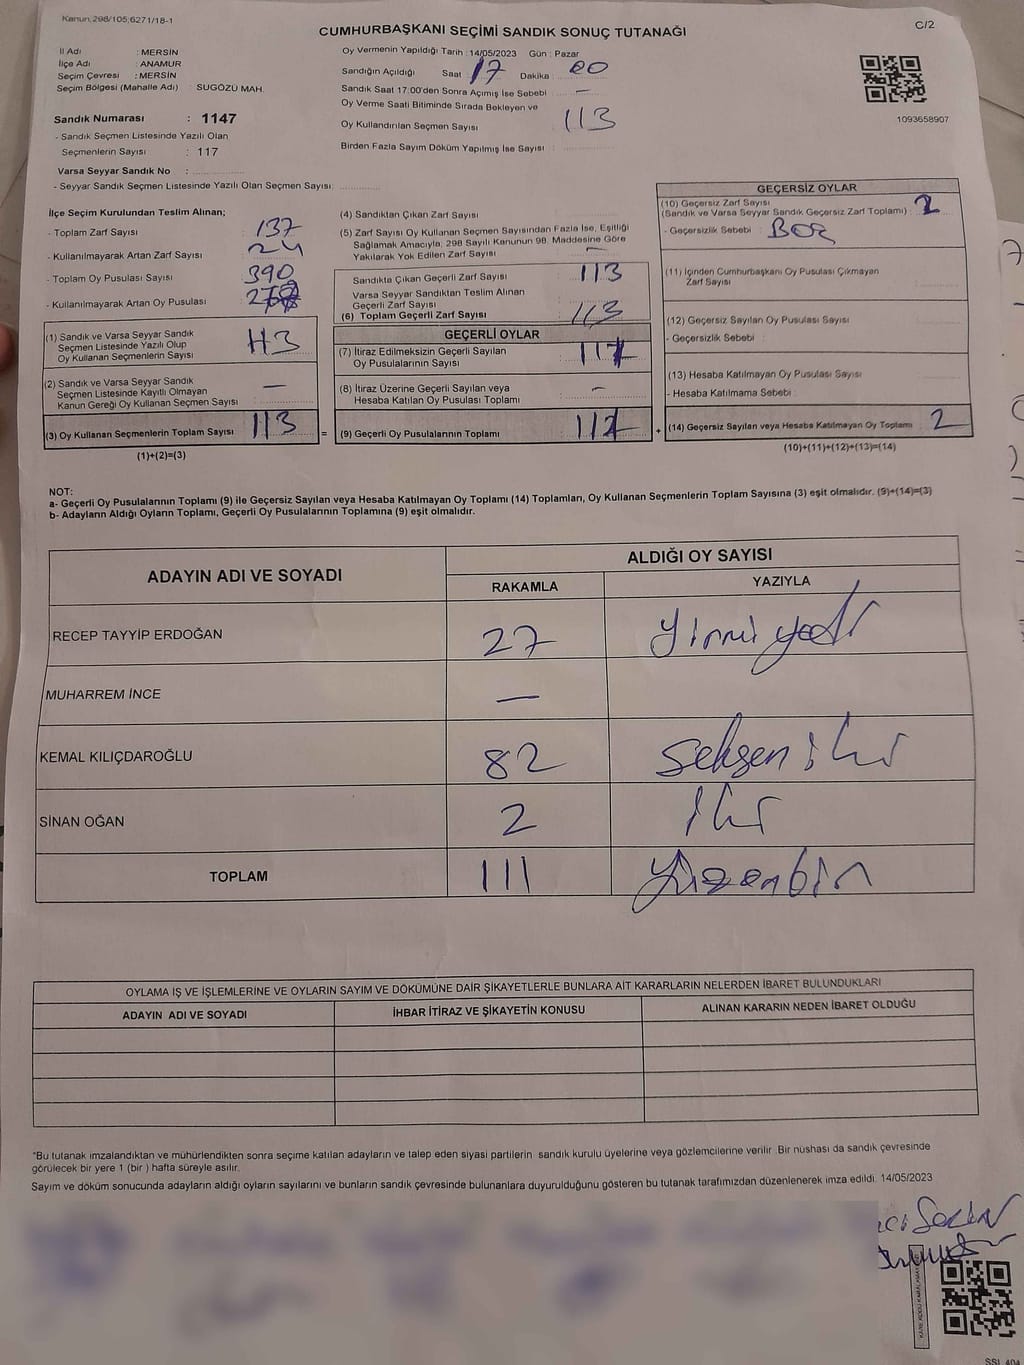 Kanun, 298/105;6271/18-1
CUMHURBAŞKANI SEÇİMİ SANDIK SONUÇ TUTANAĞI
C/2
İl Adı : MERSİN
İlçe Adı : ANAMUR
Seçim Çevresi : MERSİN
Seçim Bölgesi (Mahalle Adı) SUGÖZÜ MAH.
Sandık Numarası : 1147
- Sandık Seçmen Listesinde Yazılı Olan
Seçmenlerin Sayısı : 117
Varsa Seyyar Sandık No :
- Seyyar Sandık Seçmen Listesinde Yazılı Olan Seçmen Sayısı:
Oy Vermenin Yapıldığı Tarih : 14/05/2023 Gün : Pazar
Sandığın Açıldığı Saat : 17 Dakika : 00
Sandık Saat 17:00'den Sonra Açımış İse Sebebi : -
Oy Verme Saati Bitiminde Sırada Bekleyen ve
Oy Kullandırılan Seçmen Sayısı : 113
Birden Fazla Sayım Döküm Yapılmış İse Sayısı :
1093658907
İlçe Seçim Kurulundan Teslim Alınan;
- Toplam Zarf Sayısı : 137
- Kullanılmayarak Artan Zarf Sayısı : 24
- Toplam Oy Pusulası Sayısı : 390
- Kullanılmayarak Artan Oy Pusulası :
(1) Sandık ve Varsa Seyyar Sandık
Seçmen Listesinde Yazılı Olup
Oy Kullanan Seçmenlerin Sayısı : 113
(2) Sandık ve Varsa Seyyar Sandık
Seçmen Listesinde Kayıtlı Olmayan
Kanun Gereği Oy Kullanan Seçmen Sayısı : —
(3) Oy Kullanan Seçmenlerin Toplam Sayısı : 113 =
(1)+(2)=(3)
(4) Sandıktan Çıkan Zarf Sayısı :
(5) Zarf Sayısı Oy Kullanan Seçmen Sayısından Fazla İse, Eşitliği
Sağlamak Amacıyla, 298 Sayılı Kanunun 98. Maddesine Göre
Yakılarak Yok Edilen Zarf Sayısı : -
Sandıkta Çıkan Geçerli Zarf Sayısı : 113
Varsa Seyyar Sandıktan Teslim Alınan
Geçerli Zarf Sayısı :
(6) Toplam Geçerli Zarf Sayısı : 113
GEÇERLİ OYLAR
(7) İtiraz Edilmeksizin Geçerli Sayılan
Oy Pusulalarının Sayısı :
(8) İtiraz Üzerine Geçerli Sayılan veya
Hesaba Katılan Oy Pusulası Toplamı : -
(9) Geçerli Oy Pusulalarının Toplamı : +
GEÇERSİZ OYLAR
(10) Geçersiz Zarf Sayısı
(Sandık ve Varsa Seyyar Sandık Geçersiz Zarf Toplamı) : 2
- Geçersizlik Sebebi :
(11) İçinden Cumhurbaşkanı Oy Pusulası Çıkmayan
Zarf Sayısı :
(12) Geçersiz Sayılan Oy Pusulası Sayısı :
- Geçersizlik Sebebi :
(13) Hesaba Katılmayan Oy Pusulası Sayısı :
- Hesaba Katılmama Sebebi :
(14) Geçersiz Sayılan veya Hesaba Katılmayan Oy Toplamı : 2
(10)+(11)+(12)+(13)=(14)
NOT:
a- Geçerli Oy Pusulalarının Toplamı (9) ile Geçersiz Sayılan veya Hesaba Katılmayan Oy Toplamı (14) Toplamları, Oy Kullanan Seçmenlerin Toplam Sayısına (3) eşit olmalıdır. (9)+(14)=(3)
b- Adayların Aldığı Oyların Toplamı, Geçerli Oy Pusulalarının Toplamına (9) eşit olmalıdır.
ADAYIN ADI VE SOYADI
ALDIĞI OY SAYISI
RAKAMLA YAZIYLA
RECEP TAYYİP ERDOĞAN 27 yirmi yedi
MUHARREM İNCE —
KEMAL KILIÇDAROĞLU 82 seksen iki
SİNAN OĞAN 2 iki
TOPLAM 111 yüzonbir
OYLAMA İŞ VE İŞLEMLERİNE VE OYLARIN SAYIM VE DÖKÜMÜNE DAİR ŞİKAYETLERLE BUNLARA AİT KARARLARIN NELERDEN İBARET BULUNDUKLARI
ADAYIN ADI VE SOYADI İHBAR İTİRAZ VE ŞİKAYETİN KONUSU ALINAN KARARIN NEDEN İBARET OLDUĞU
*Bu tutanak imzalandıktan ve mühürlendikten sonra seçime katılan adayların ve talep eden siyasi partilerin sandık kurulu üyelerine veya gözlemcilerine verilir. Bir nüshası da sandık çevresinde
görülecek bir yere 1 (bir ) hafta süreyle asılır.
Sayım ve döküm sonucunda adayların aldığı oyların sayılarını ve bunların sandık çevresinde bulunanlara duyurulduğunu gösteren bu tutanak tarafımızdan düzenlenerek imza edildi. 14/05/2023